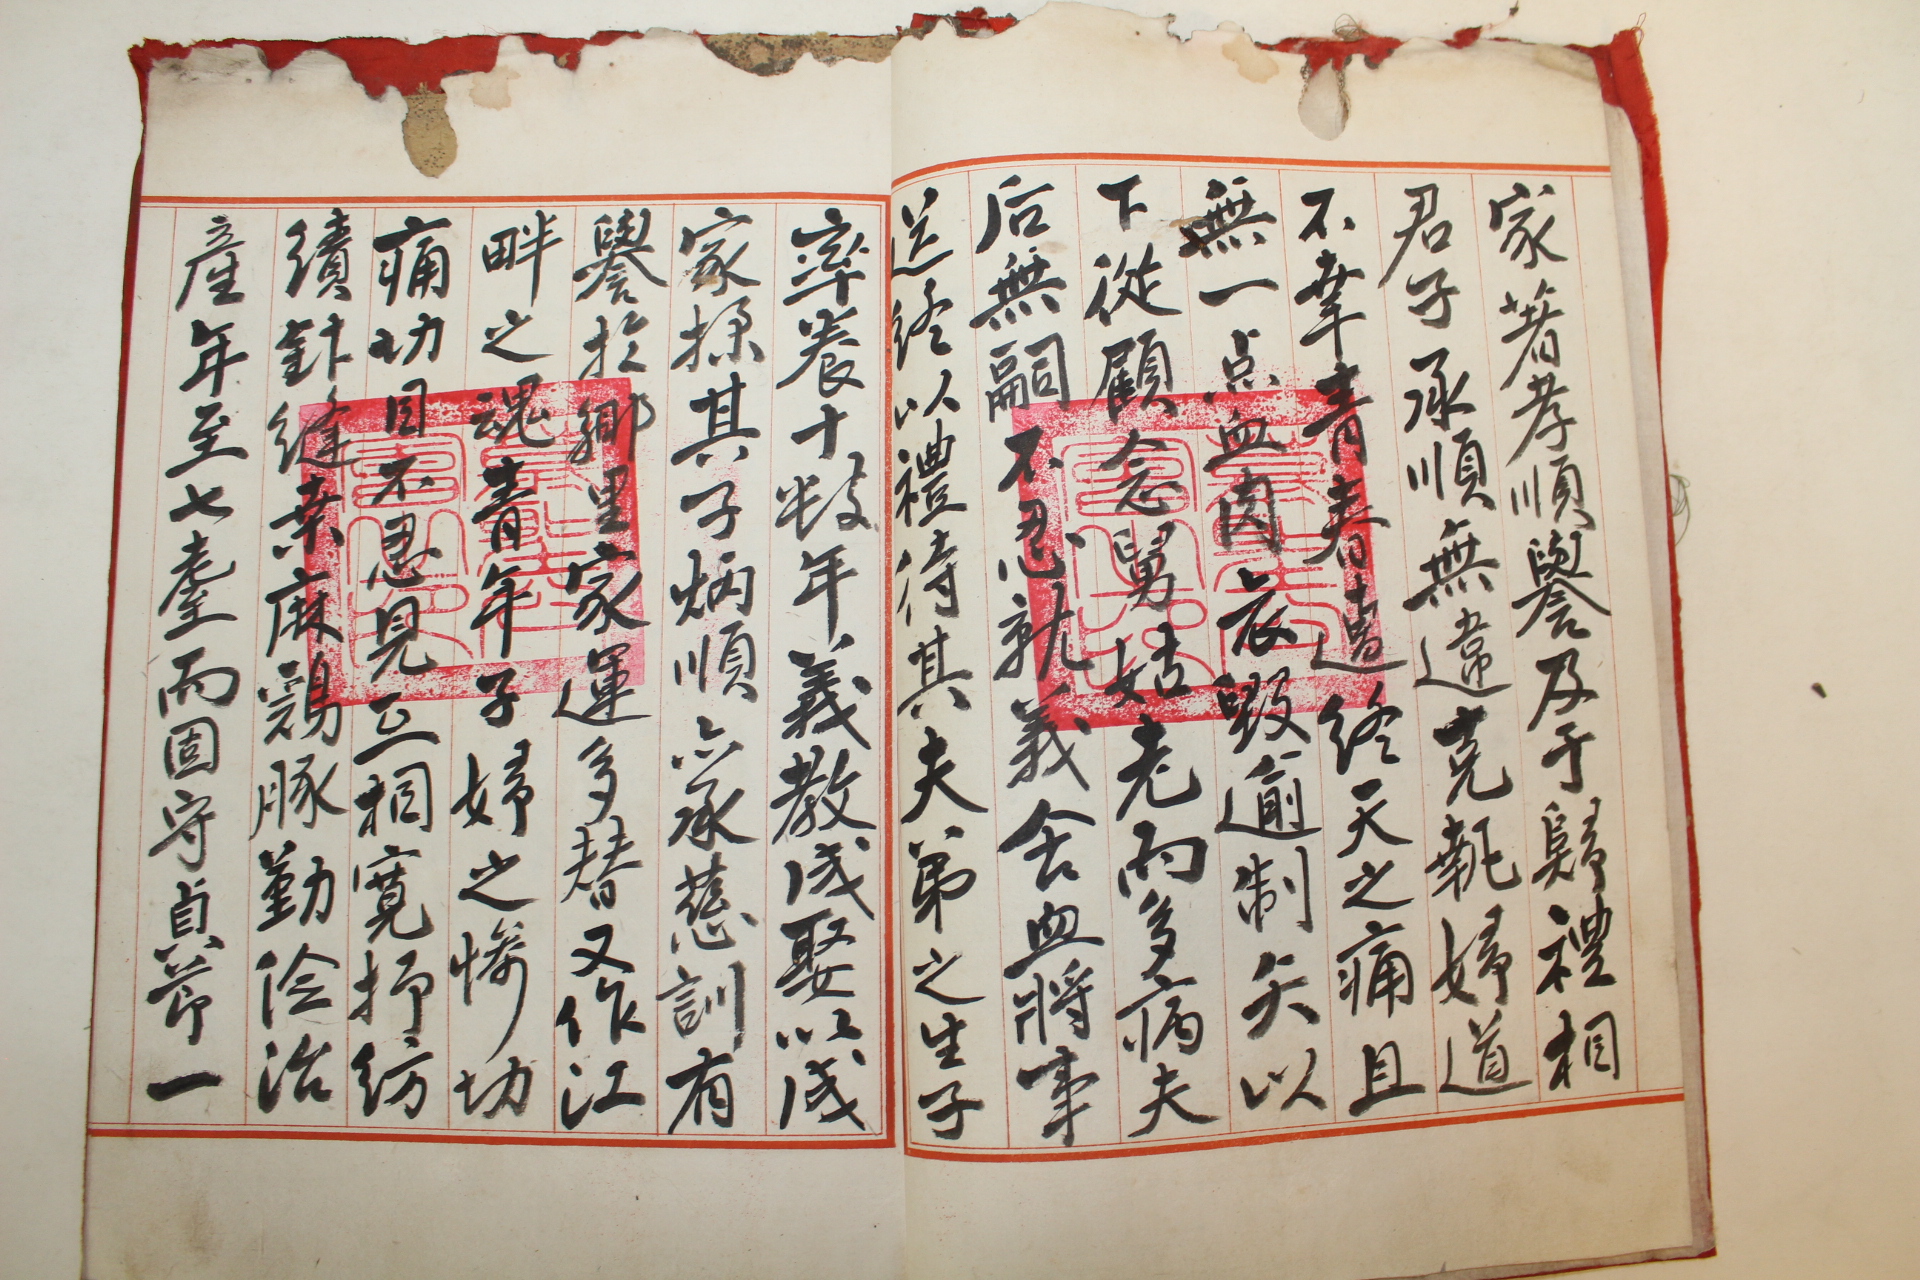 家著孝順譽及于歸禮相
君子承順無違克執婦道
不幸青春遽終天之痛且
無一点血肉哀毀逾制矢以
下從顧念舅姑老而多病夫
后無嗣不忍就義舍血將事
送終以禮待其夫弟之生子
率養十數年義教成娶以成
家操其子炳順亦承慈訓有
譽於鄉里家運多替又作江
畔之魂青年子婦之慘切
痛切目不忍見互相寬抒紡
績針縫桑麻鷄豚勤儉治
産年至七耋而固守貞節一